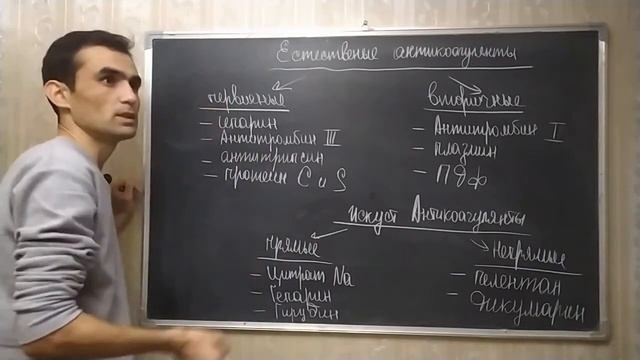 Естественые антикоагулянты
первичные
- гепарин
- Антитромбин III
- антитрипсин
- протеин С и S
вторичные
- Антитромбин I
- плазмин
- ПДФ
искуст Антикоагулянты
прямые
- Цитрат Na
- Гепарин
- Гирудин
Непрямые
- пелентан
- Дикумарин